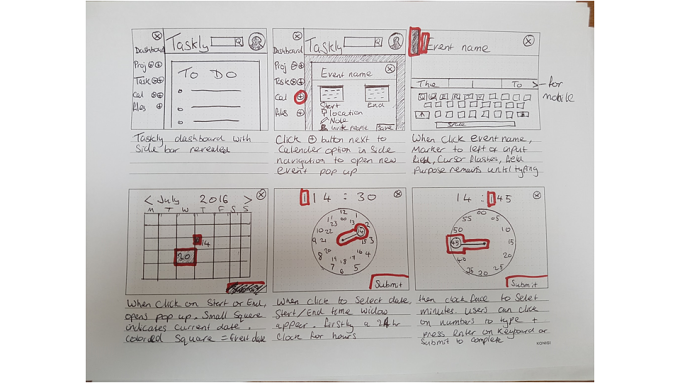 Dashboard
Proj
Task
Cal
Files
Taskly
TO DO
Taskly dashboard with
Side bar revealed
Dashboard
Proj
Task
Cal
Files
Taskly
Event name
Start
End
location
Note
Save
Click + button next to
Calender option in Side
navigation to open new
event pop up
Event name
The
To
for
mobile
When click event name,
Marker to left of input
field, Cursor flashes, field
Purpose remains until typing.
July 2016
M T W T F S S
14
20
When Click on Start or End,
opens pop up. Small Square
indicates current date.
Colored Square = Event date
14 : 30
12
1
2
3
4
5
6
7
8
9
10
11
Submit
When click to Select date
Start/End time widow
appear. firstly a 24 hr
Clock for hours
14 : 45
00
05
10
15
20
25
30
35
40
45
50
55
Submit
then clock face to Select
minutes. users can click
on numbers to type +
press enter on Keyboard or
Submit to complete